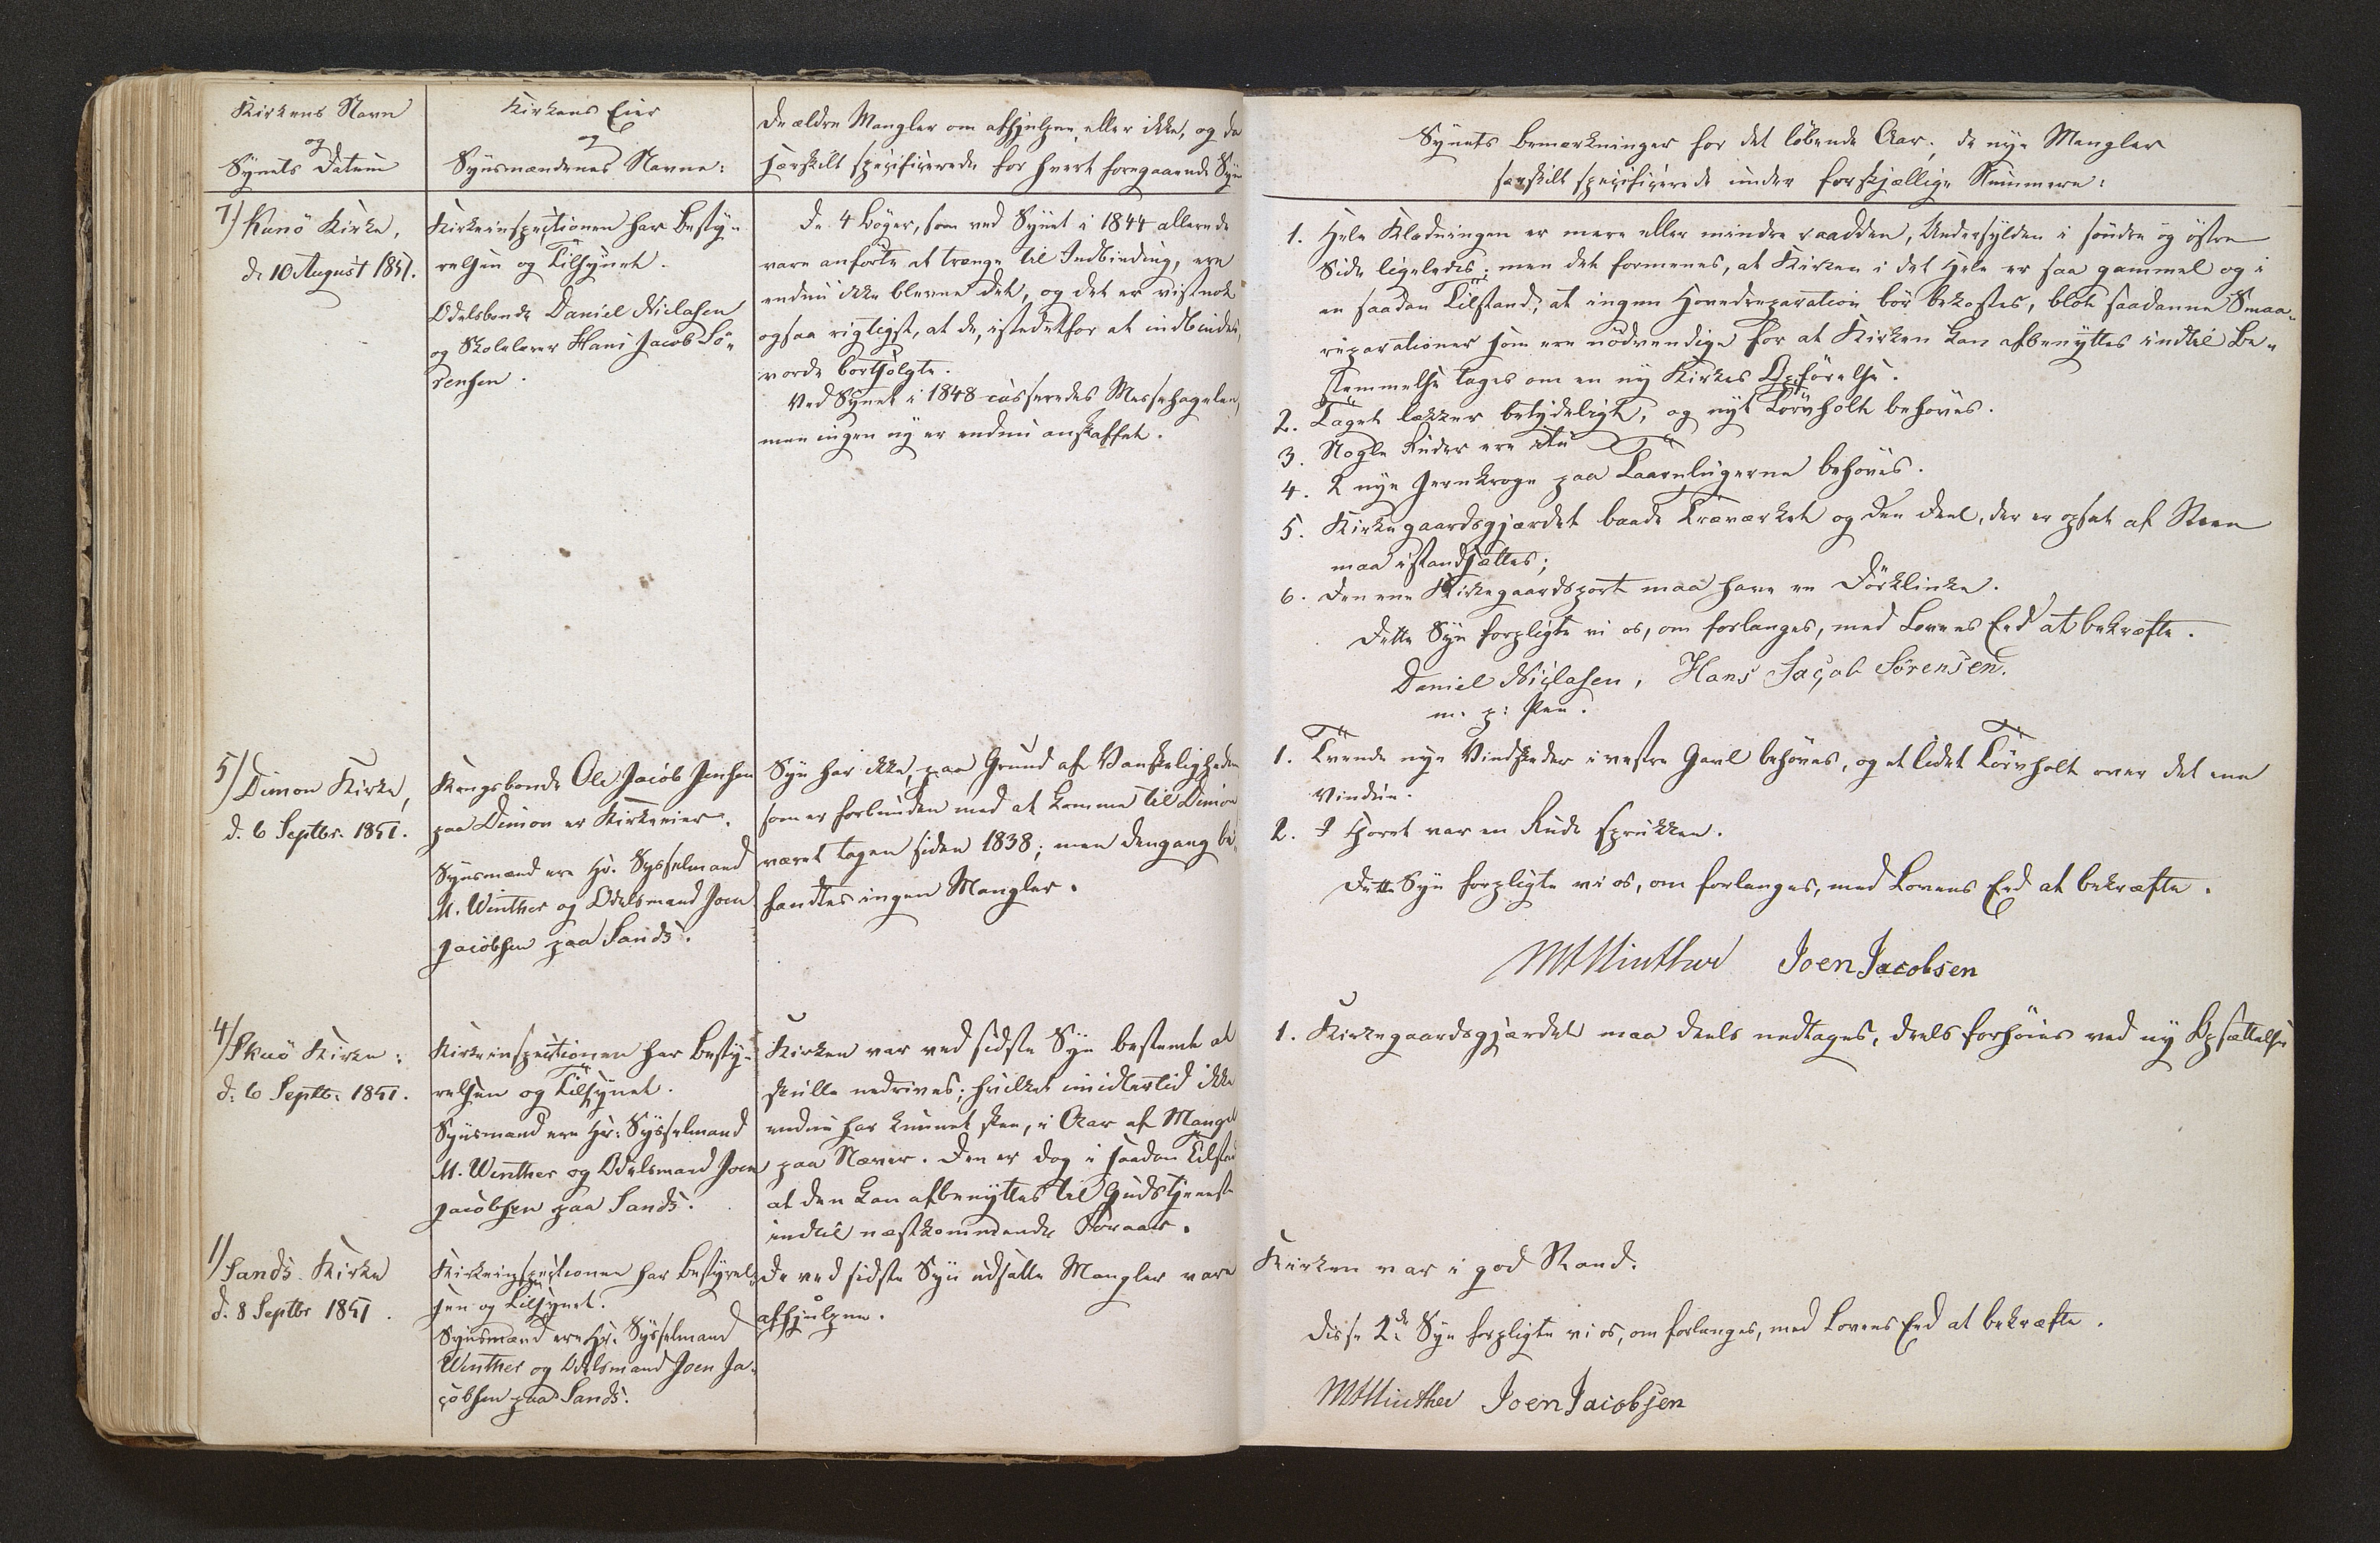 Kirkens Navn
og
Synets Datum
Kirkens Eier
og
Synsmændenes Navne:
De ældre Mangler om afhjulpne eller ikke, og de
særskilt specificerede for hvert foregaaende Syn
7) Kunö Kirke,
d. 10 August 1851.
Kirkeinspectionen har Besty-
relsen og Tilsynet.
Odelsbonde Daniel Niclasen
og Skolelærer Hans Jacob Sö-
rensen.
De 4 Böger, som ved Synet i 1844 allerede
vare anförte at trænge til Indbinding, ere
endnu ikke blevne det, og det er vistnok
ogsaa rigtigst, at de, istedetfor at indbindes,
vorde bortsolgte.
Ved Synet i 1848 casseredes Messehagelen,
men ingen ny er endnu anskaffet.
5) Dimon Kirke,
d. 6 Septbr. 1851.
Kongsbonde Ole Jacob Jensen
paa Dimon er Kirkeeier.
Synsmænd ere Hr. Sysselmand
M. Winther og Odelsmand Joen
Jacobsen paa Sands.
Syn har ikke, paa Grund af Vanskeligheden
som er forbunden med at komme til Dimon
været tagen siden 1838; men dengang be-
fandtes ingen Mangler.
4) Skuö Kirke:
d. 6 Septb. 1851.
Kirkeinspectionen har Besty-
relsen og Tilsynet.
Synsmænd ere Hr: Sysselmand
M. Winther og Odelsmand Joen
Jacobsen paa Sands.
Kirken var ved sidste Syn bestemt at
skulle nedrives; hvilket imidlertid ikke
endnu har kunnet skee, i Aar af Mangel
paa Næver. Den er dog i saadan Tilstand
at den kan afbenyttes til Gudstjeneste
indtil næstkommende Foraar.
1) Sands Kirke
d. 8 Septbr 1851.
Kirkeinspectionen har Bestyrel-
sen og Tilsynet.
Synsmænd ere Hr. Sysselmand
Winther og Odelsmand Joen Ja-
cobsen paa Sands.
De ved sidste Syn udsatte Mangler vare
afhjulpne.
Synets Bemærkninger for det löbende Aar; de nye Mangler
særskilt specificerede under forskjællige Nummere:
1. Hele Klædningen er mere eller mindre raadden, Undersylden i söndre og östre
Side ligeledes; men det formenes, at Kirken i det Hele er saa gammel og i
en saadan Tilstand, at ingen Hovedreparation bör bekostes, blot saadanne Smaa-
reparationer som ere nödvendige for at Kirken kan afbenyttes indtil Be-
stemmelse tages om en ny Kirkes Opförelse.
2. Taget lækker betydeligt, og nyt Törvholt behöves.
3. Nogle Ruder ere itu
4. 2 nye Jernkroge paa Taarnlugerne behöves.
5. Kirkegaardsgjærdet baade Træværket og den Deel, der er opsat af Steen
maa istandsættes;
6. Den ene Kirkegaardsport maa have en Dörklinke.
Dette Syn forpligte vi os, om forlanges, med Lovens Eed at bekræfte.
Daniel Niclasen, Hans Jacob Sörensen.
m. p: Pen.
1. Tvende nye Vindskeder i vestre Gavl behöves, og et lidet Törvholt over det ene
Vindue.
2. I Choret var en Rude sprukken.
Dette Syn forpligte vi os, om forlanges, med Lovens Eed at bekræfte.
MWinther Joen Jacobsen
1. Kirkegaardsgjærdet maa deels nedtages, deels forhöies ved ny Opsættelse
Kirken var i god Stand.
Disse 2de Syn forpligte vi os, om forlanges, med Lovens Eed at bekræfte.
MWinther Joen Jacobsen